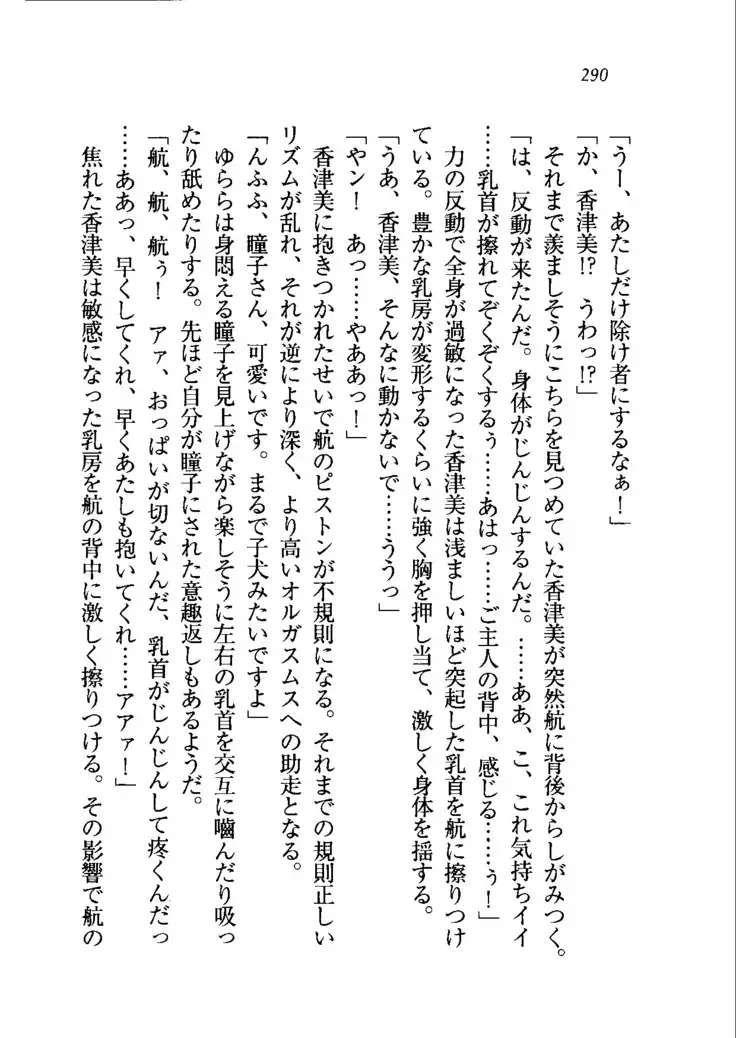 290
「うー、あたしだけ除け者にするなぁ！」
「か、香津美!?　うわっ!?」
それまで羨ましそうにこちらを見つめていた香津美が突然航に背後からしがみつく。
「は、反動が来たんだ。身体がじんじんするんだ。……ああ、こ、これ気持ちイイ
……乳首が擦れてぞくぞくするぅ……あはっ……ご主人の背中、感じる……ぅ！」
力の反動で全身が過敏になった香津美は浅ましいほど突起した乳首を航に擦りつけ
ている。豊かな乳房が変形するくらいに強く胸を押し当て、激しく身体を揺する。
「うあ、香津美、そんなに動かないで……ううっ」
「やン！　あっ……やああっ！」
香津美に抱きつかれたせいで航のピストンが不規則になる。それまでの規則正しい
リズムが乱れ、それが逆により深く、より高いオルガスムスへの助走となる。
「んふふ、瞳子さん、可愛いです。まるで子犬みたいですよ」
ゆららは身悶える瞳子を見上げながら楽しそうに左右の乳首を交互に嚙んだり吸っ
たり舐めたりする。先ほど自分が瞳子にされた意趣返しもあるようだ。
「航、航、航ぅ！　アァ、おっぱいが切ないんだ、乳首がじんじんして疼くんだっ
……ああっ、早くしてくれ、早くあたしも抱いてくれ……アアァ！」
焦れた香津美は敏感になった乳房を航の背中に激しく擦りつける。その影響で航の